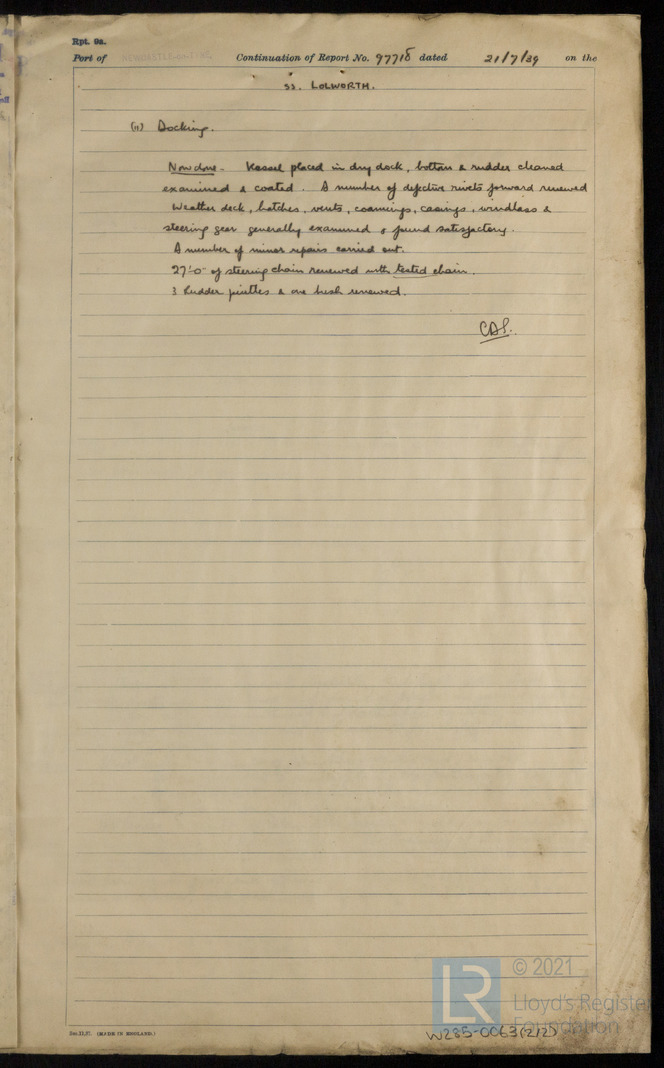 Rpt. 9a.
Port of NEWCASTLE-on-TYNE Continuation of Report No. 97718 dated 21/7/39 on the
SS. LOLWORTH.
(11) Docking.
Now done. Vessel placed in dry dock, bottom & rudder cleaned
examined & coated. A number of defective rivets forward renewed
Weather deck, hatches, vents, coamings, casings, windlass &
steering gear generally examined & found satisfactory.
A number of minor repairs carried out.
27'-0" of steering chain renewed with tested chain.
3 Rudder pintles & one bush renewed.
© 2021
LR
Lloyd's Register
Foundation
W285-0063(2/2)
(MADE IN ENGLAND.)